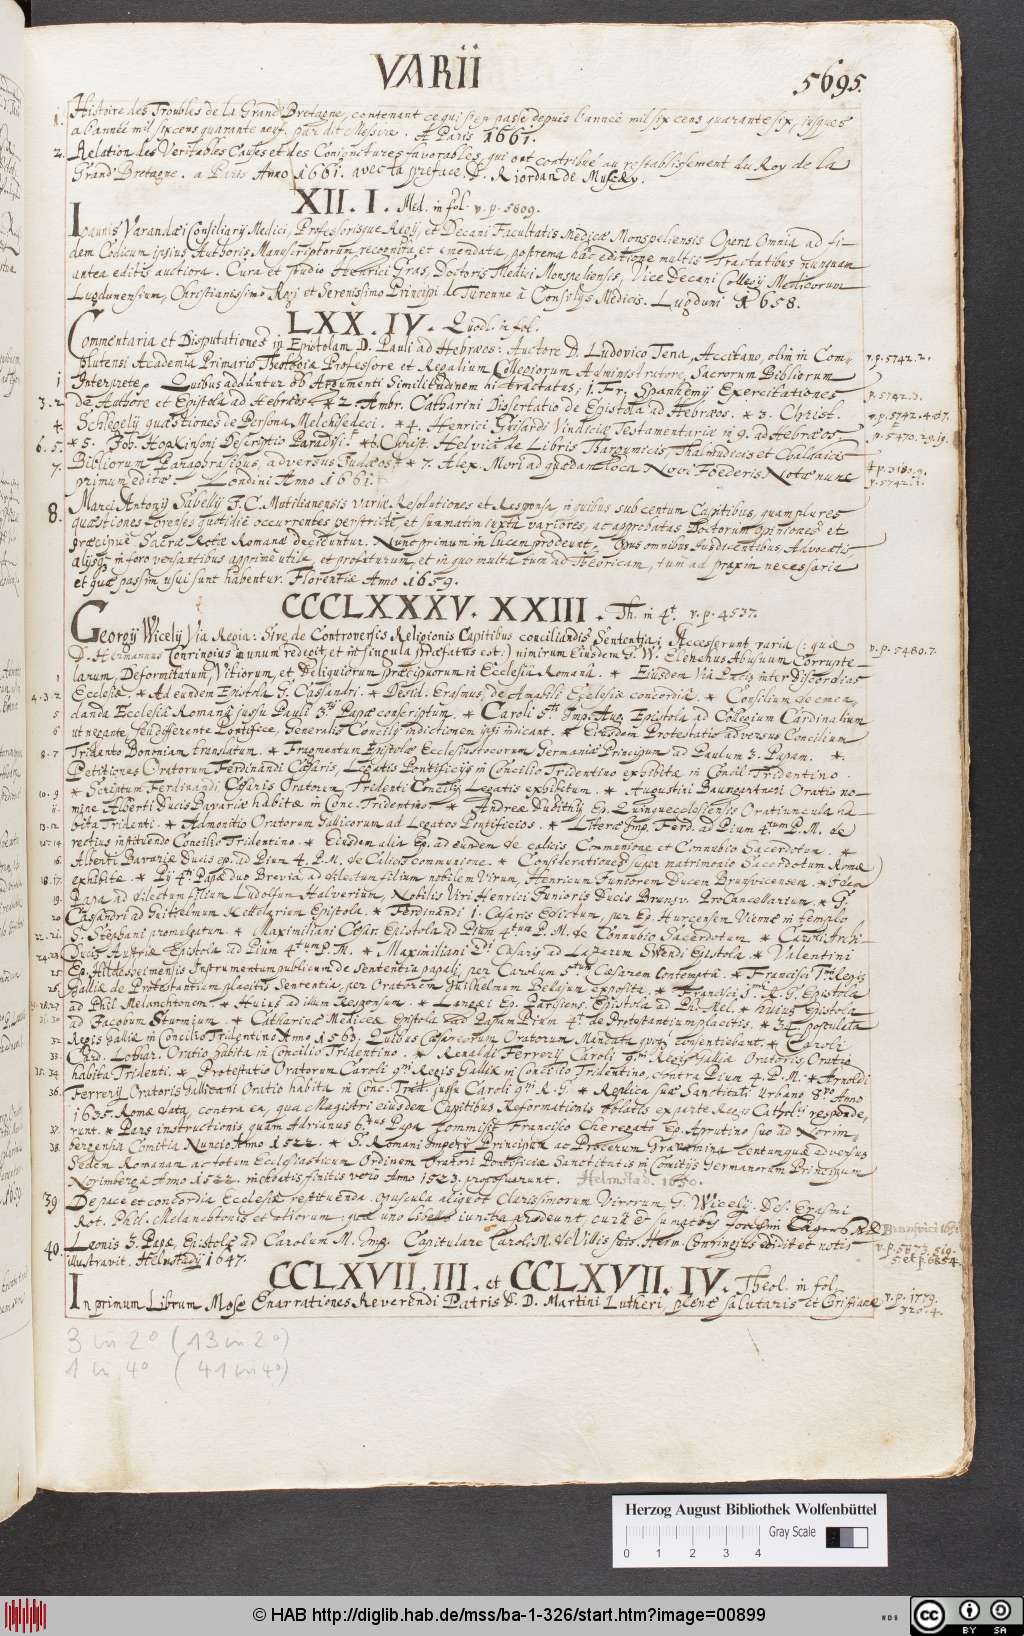 VARII
5695.
1. Histoire des Troubles de la Grand' Bretagne, contenant ce qui s'est passé depuis l'année mil six cens quarante six, jusques
a l'année mil six cens quarante neuf. par dit Messire. A Paris 1661.
2. Relation des Veritables Causes et des Conjonctures favorables, qui ont contribué au restablissement du Roy de la
Grand' Bretagne. a Paris Anno 1661. avec la preface. R. Riordan de Muscry.
XII. I. Med. in fol. v. p. 5809.
Ioannis Varandæi Consiliarij Medici, Professorisque Regij, et Decani Facultatis Medicæ Monspeliensis Opera Omnia ad fi-
dem Codicum ipsius Authoris Manuscriptorum recognita et emendata, postrema hac editione multis Tractatibus nunquam
antea editis auctiora. Cura et studio Henrici Gras, Doctoris Medici Monspeliensis, Vice Decani Collegij Medicorum
Lugdunensium, Christianissimo Regi et Serenissimo Principi de Turenne à Consilijs Medicis. Lugduni 1658.
LXX. IV. Quodl. in fol.
Commentaria et Disputationes in Epistolam D. Pauli ad Hebræos: Auctore D. Ludovico Tena, Accitano, olim in Com- v. p. 5742. 2.
plutensi Academia Primario Theologiæ Professore et Regalium Collegiorum Administratore, Sacrorum Bibliorum
1 Interprete. Quibus adduntur ob Argumenti Similitudinem hi tractatus; 1. Fr. Spanhemij Exercitationes p. 5742. 3.
3. 2 de Authore et Epistola ad Hebræos * 2. Ambr. Catharini Dissertatio de Epistola ad Hebræos. * 3. Christ. v. p. 5742. 4.
4. Schlegelij quæstiones de Persona Melchisedeci. * 4. Henrici Gebhardi Vindiciæ Testamentariæ in 9. ad Hebræos
6. 5. * 5. Joh. Hopkinsoni Descriptio Paradysi. * 6. Christ. Helvici de Libris Thargumicis Thalmudicis et Chaldaicis p. 5470.
7. Bibliorum Paraphrasibus, adversus Judæos. * 7. Alex. Mori ad quædam loca Novi Foederis Notæ nunc p. 3180. 9.
primum editæ. Londini Anno 1661. v. 5742. 1.
8. Marci Antonij Sabellij J. C. Mutilianensis variæ Resolutiones et Responsa in quibus sub centum Capitibus, quamplures
quæstiones forenses quotidie occurrentes perstricte et summatim iuxta variores, ac approbatas Doctorum opiniones et
præcipue Sacræ Rotæ Romanæ deciduntur. Nunc primum in lucem prodeunt. Opus omnibus Jusdicentibus, Advocatis
alijsq. in foro versantibus apprime utile, et profuturum, et in quo multa tum ad Theoricam, tum ad praxim necessaria
et quæ passim usui sunt habentur. Florentiæ Anno 1659.
CCCLXXXV. XXIII. Th. in 4t. v. p. 4537.
Georgij Wicelij Via Regia: Sive de Controversis Religionis Capitibus conciliandis Sententia; Accesserunt varia (: quæ
D. Hermannus Conringius in unum redegit et in singula præfatus est.) nimirum Eiusdem G. W. Elenchus Abusuum Corrupte- v. p. 5480. 7.
1 larum, Deformitatum, Vitiorum, et Deliquiorum præcipuorum in Ecclesia Romana. * Eiusdem Via Pacis inter Discordias
4. 3. 2 Ecclesiæ. * Ad eundem Epistola G. Cassandri. * Desid. Erasmus de Amabili Ecclesiæ concordia. * Consilium de emen-
5 danda Ecclesia Romana jussu Pauli 3tij Papæ conscriptum. * Caroli 5ti Imp. Aug. Epistola ad Collegium Cardinalium
6 ut negante, seu differente Pontifice, Generalis Concilij indictionem ipsi indicant. * Eiusdem Protestatio adversus Concilium
8. 7 Tridento Bononiam translatum. * Fragmentum Epistolæ Ecclesiasticorum Germaniæ Principum ad Paulum 3. Papam. *
Petitiones Oratorum Ferdinandi Cæsaris, Legatis Pontificijs in Concilio Tridentino exhibita in Concil. Tridentino.
10. 9 * Scriptum Ferdinandi Cæsaris Oratorum, Tridenti Concilij Legatis exhibitum. * Augustini Baungartneri Oratio no-
11. mine Alberti Ducis Bavariæ habitæ in Conc. Tridentino. * Andreæ Dudithij Ep. Quinqueecclesiensis Oratiuncula ha-
13. 12 bita Tridenti. * Admonitio Oratorum Gallicorum ad Legatos Pontificios. * Literæ Imp. Ferd. ad Pium 4tum P. M. de
15. 14 rectius instituendo Concilio Tridentino. * Eiusdem alia Ep. ad eundem de calicis Communione et Connubio Sacerdotum. *
16. Alberti Bavariæ Ducis ep. ad Pium 4. P. M. de Calicis communione. * Considerationes super matrimonio Sacerdotum Romæ
18. 17. exhibitæ. * Pij 4ti Papæ duo Brevia ad dilectum filium nobilem Virum, Henricum Juniorem Ducem Brunsvicensem. * Idem
19. Papa ad dilectum filium Ludolfum Halverium, Nobilis Viri Henrici Junioris Ducis Brunsv. ProCancellarium. * G.
20 Cassandri ad Guilhelmum Kettelerium Epistola. * Ferdinandi 1. Cæsaris Edictum, per Ep. Gurcensem Viennæ in templo
22. 21. S. Stephani promulgatum. * Maximiliani Cæsar. Epistola ad Pium 4tum P. M. de Connubio Sacerdotum * Caroli Archi-
24. 23 Ducis Austriæ Epistola ad Pium 4tum P. M. * Maximiliani 2di Cæsaris ad Lazarum Swendi Epistola. * Valentini
25 Ep. Hildesheimensis Instrumentum publicum de Sententia papali, per Carolum 5tum Cæsarem Contempta. * Francisci 1mi Regis
26 Galliæ de Protestantium placitis Sententia, per Oratorem Guilhelmum Belajum exposita. * Francisci 1mi R. G. Epistola
ad Phil. Melanchtonem. * Huius ad illum Responsum. * Langæi Ep. Parisiens. Epistola ad Ph. Mel. * huius Epistola
31. 30 ad Jacobum Sturmium. * Catharinæ Mediceæ Epistola ad Papam Pium 4t. de Protestantium placitis. * 34 postulata
32 Regis Galliæ in Concilio Tridentino Anno 1563. Quibus Cæsareorum Oratorum Mandata quoq. consentiebant. * Caroli
33. Card. Lothar. Oratio habita in Concilio Tridentino. * Renaldi Ferrerij Caroli 9ni Regis Galliæ Oratoris, Oratio
35. 34 habita Tridenti. * Protestatio Oratorum Caroli 9ni Regis Galliæ in Concilio Tridentino, contra Pium 4. P. M. * Arnoldi
36. Ferrerij Oratoris Gallicani Oratio habita in Conc. Trid. jussu Caroli 9ni R. G. * Replica suæ Sanctitati Urbano 8vo Anno
1635. Romæ data, contra ea, quæ Magistri eiusdem Capitibus Reformationis oblatis ex parte Regis Catholici responde-
37. runt. * Pars instructionis quam Adrianus 6tus Papa commisit Francisco Cheregato Ep. Aprutino suo ad Norim-
38. bergensia Comitia Nuncio Anno 1522. * S. Romani Imperij Principum ac Procerum Gravamina Centumquæ adversus
Sedem Romanam ac totum Ecclesiasticum Ordinem Oratori Pontificiæ Sanctitatis in Comitijs Germanorum Principum
Norimbergæ Anno 1522. inchoatis finitis vero Anno 1523. proposuerunt. Helmstad. 1650.
39 De pace et concordia Ecclesiæ restituenda opuscula aliquot Clarissimorum Virorum, G. Wicelij, Des. Erasmi
Rot. Phil. Melanchtonis et aliorum: quæ uno libello iuncta prodeunt, cura et sumptibus Brunsvici 1650.
40. Leonis 3. Papæ, Epistolæ ad Carolum M. Imp. Capitulare Caroli M. de Villis suis. Herm. Conringius edidit et notis v. p. 5873. 519.
illustravit. Helmstadij 1647. 5 et p. 6854.
CCLXVII. III. et CCLXVII. IV. Theol. in fol.
In primum Librum Mose Enarrationes Reverendi Patris D. D. Martini Lutheri, plenæ salutaris et Christianæ v. p. 1779. 320. 4.
3 in 2° (13 in 2°)
1 in 4° (41 in 4°)
Herzog August Bibliothek Wolfenbüttel
Gray Scale
0 1 2 3 4
© HAB http://diglib.hab.de/mss/ba-1-326/start.htm?image=00899
WDB
cc BY SA